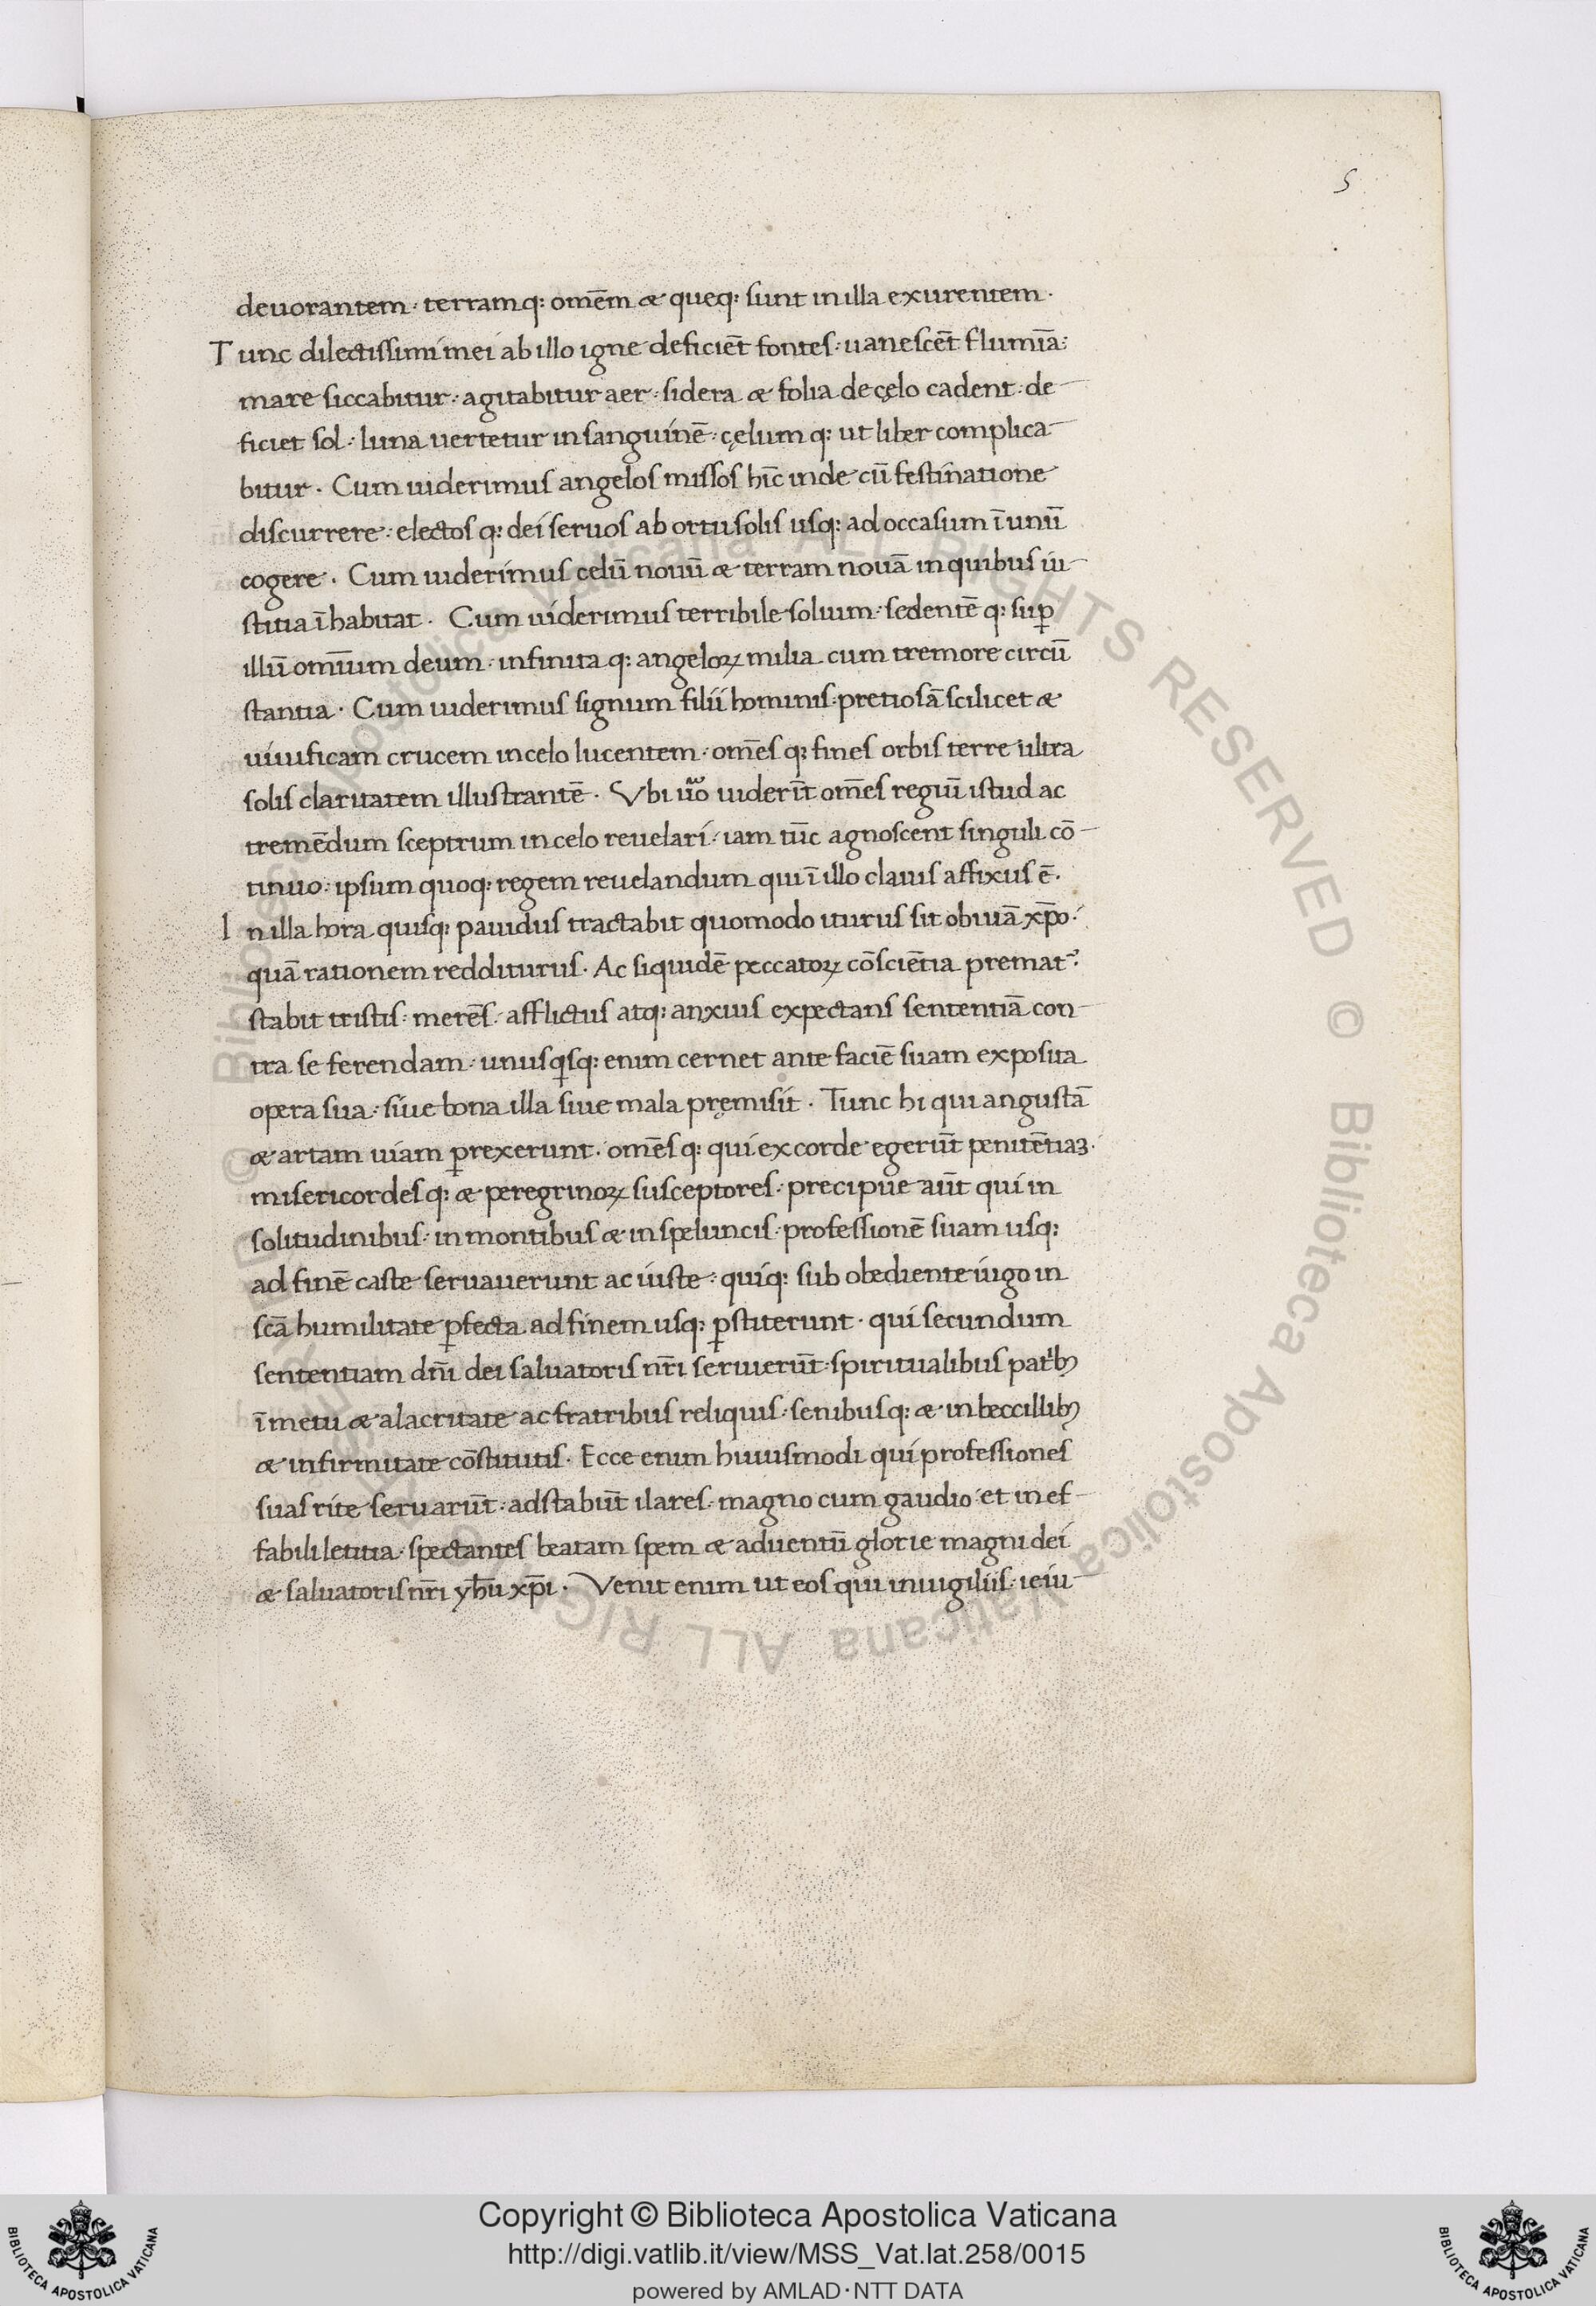 5
deuorantem · terramq: omēm & queq: sunt in illa exurentem ·
Tunc dilectissimi mei ab illo igne deficiēt fontes : uanescēt flumīa :
mare siccabitur : agitabitur aer : sidera & folia de cęlo cadent : de
ficiet sol : luna uertetur in sanguinē : cęlum q: ut liber complica
bitur · Cum uiderimus angelos missos hīc inde cū festinatione
discurrere : electos q: dei seruos ab ortu solis usq: ad occasum ī unū
cogere · Cum uiderimus celū nouū & terram nouā in quibus iu
stitia īhabitat · Cum uiderimus terribile solium : sedentē q: sup̱
illū omīum deum · infinita q: angeloꝝ milia cum tremore circū
stantia · Cum uiderimus signum filii hominis : pretiosā scilicet &
uiuificam crucem in celo lucentem · omēs q: fines orbis terre ultra
solis claritatem illustrantē · Vbi ūo uiderīt omēs regiū istud ac
tremēdum sceptrum in celo reuelari : iam tūc agnoscent singuli cō
tinuo : ipsum quoq: regem reuelandum qui ī illo clauis affixus ē ·
In illa hora quisq: pauidus tractabit quomodo iturus sit obuiā xp̄o :
quā rationem redditurus · Ac siquidē peccatoꝝ cōsciētia premat᷒ :
stabit tristis : merēs : afflictus atq: anxius expectans sententiā con
tra se ferendam · unusqisq: enim cernet ante faciē suam exposita
opera sua : siue bona illa siue mala pręmisit · Tunc hi qui angustā
& artam uiam ꝑrexerunt · omēs q: qui ex corde egerūt penitētiaꝫ ·
misericordes q: & peregrinoꝝ susceptores : precipue aūt qui in
solitudinibus : in montibus & in speluncis : professionē suam usq:
ad finē caste seruauerunt ac iuste : quiq: sub obediente iugo in
scā humilitate ꝑfecta ad finem usq: ꝑstiterunt · qui secundum
sententiam dn̄i dei saluatoris nr̄i seruierūt : spiritualibus patribꝯ
ī metu & alacritate ac fratribus reliquis : senibus q: & inbeccillibꝯ
& infirmitate cōstitutis · Ecce enim huiusmodi qui professiones
suas rite seruarūt : adstabūt ilares : magno cum gaudio et inef
fabili letitia : spectantes beatam spem & aduentū glorie magni dei
& saluatoris nr̄i yh̄u xp̄i · Venit enim ut eos qui in uigiliis : ieiu
Copyright © Biblioteca Apostolica Vaticana
http://digi.vatlib.it/view/MSS_Vat.lat.258/0015
powered by AMLAD·NTT DATA